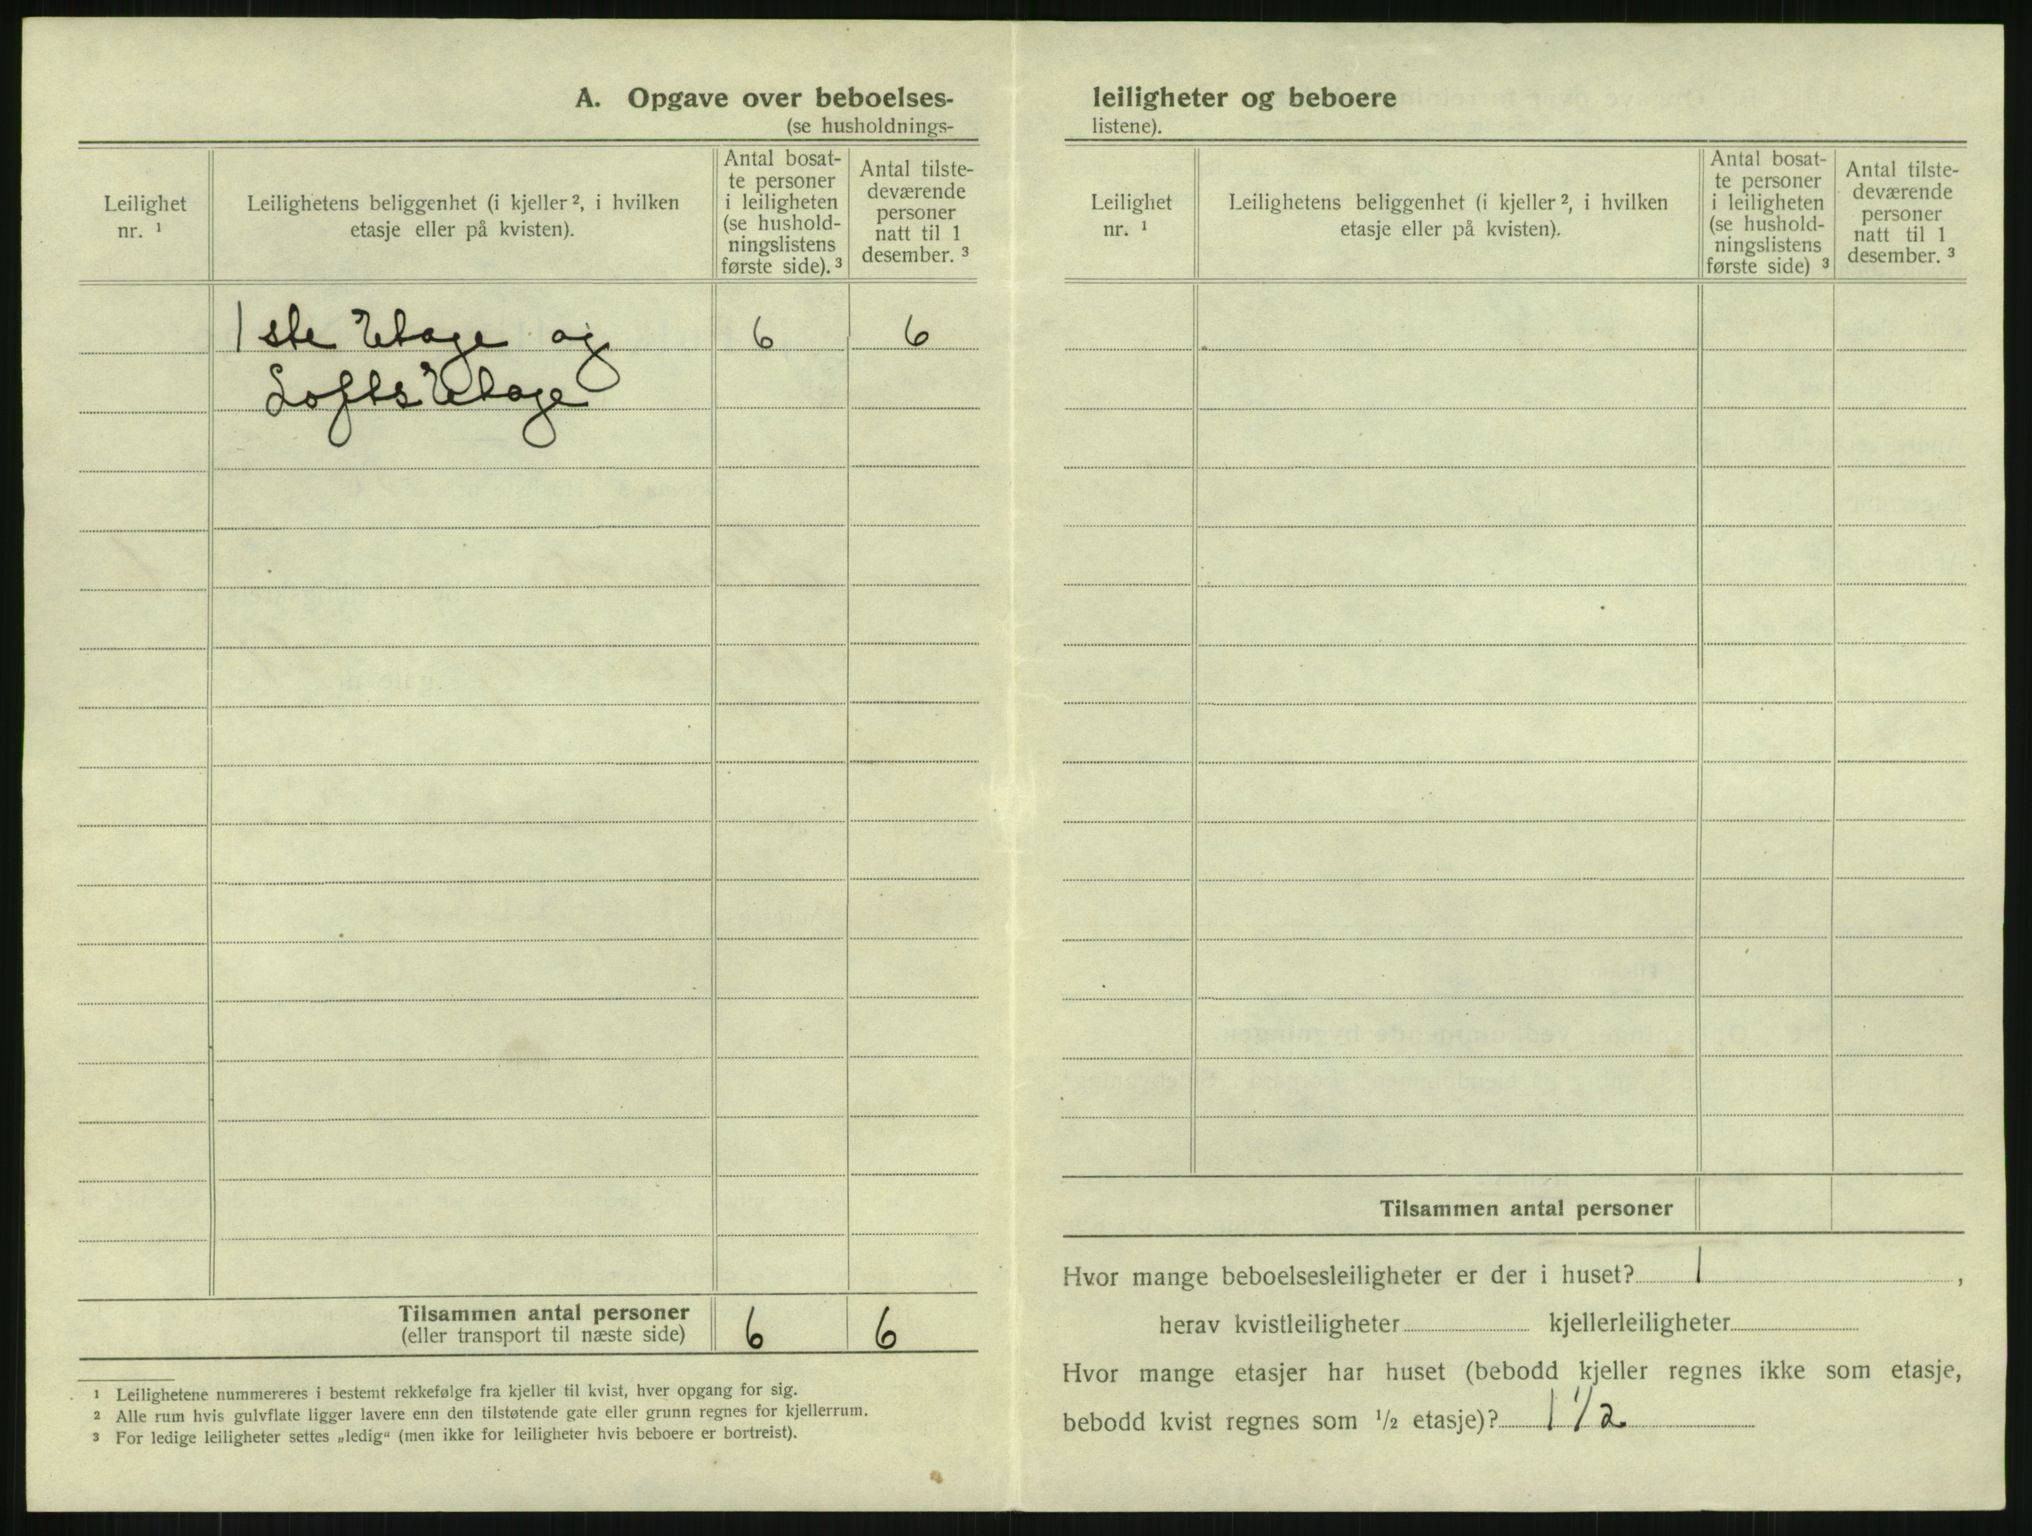 A. Opgave over beboelses-
(se husholdnings-
Leilighet
nr. ¹
Leilighetens beliggenhet (i kjeller ², i hvilken
etasje eller på kvisten).
Antal bosat-
te personer
i leiligheten
(se hushold-
ningslistens
første side). ³
Antal tilste-
deværende
personer
natt til 1
desember. ³
1ste Etage og 6 6
Lofts Etage
Tilsammen antal personer
(eller transport til næste side) 6 6
¹ Leilighetene nummereres i bestemt rekkefølge fra kjeller til kvist, hver opgang for sig.
² Alle rum hvis gulvflate ligger lavere enn den tilstøtende gate eller grunn regnes for kjellerrum.
³ For ledige leiligheter settes „ledig“ (men ikke for leiligheter hvis beboere er bortreist).
leiligheter og beboere
listene).
Leilighet
nr. ¹
Leilighetens beliggenhet (i kjeller ², i hvilken
etasje eller på kvisten).
Antal bosat-
te personer
i leiligheten
(se hushold-
ningslistens
første side) ³
Antal tilste-
deværende
personer
natt til 1
desember. ³
Tilsammen antal personer
Hvor mange beboelsesleiligheter er der i huset? 1 ,
herav kvistleiligheter kjellerleiligheter
Hvor mange etasjer har huset (bebodd kjeller regnes ikke som etasje,
bebodd kvist regnes som ½ etasje)? 1 ½